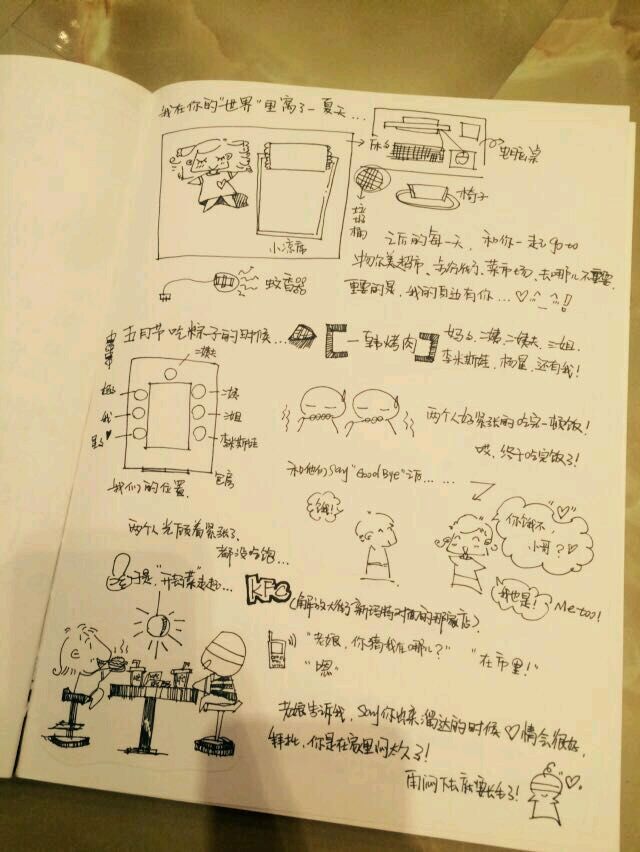 我在你的"世界"里窝了一夏天...
电脑桌
椅子
垃圾桶
小凉席
蚊香器
之后的每一天，和你一起 go to
沃尔美超市、去菜市场、去哪儿不重要
重要的是，我的身边有你...♡^_^!!
五月节吃粽子的时候...
[一韩烤肉]
妈妈、二姨、二姨夫、三姐、
李米斯娃、杨星、还有我!
二姨夫
妈妈
二姨
我
三姐
星星♥
李米斯娃
包房
我们的位置.
两个人好紧张的吃完一顿饭!
哎，终于吃完饭了!
和他们say "Good Bye"之后......
两个人光顾着紧张了
都没吃饱...
饿!
你饿不
小哥?♡
我也是!
Me too!
于是，"开封菜"走起...
KFC
(解放大路新玛特对面的那家店)
"老娘，你猜我在哪儿?"
"在市里!"
"嗯"
老娘告诉我，say你出来溜达的时候♡情会很好.
拜托，你是在家里闷太久了!
再闷下去就要长毛了!